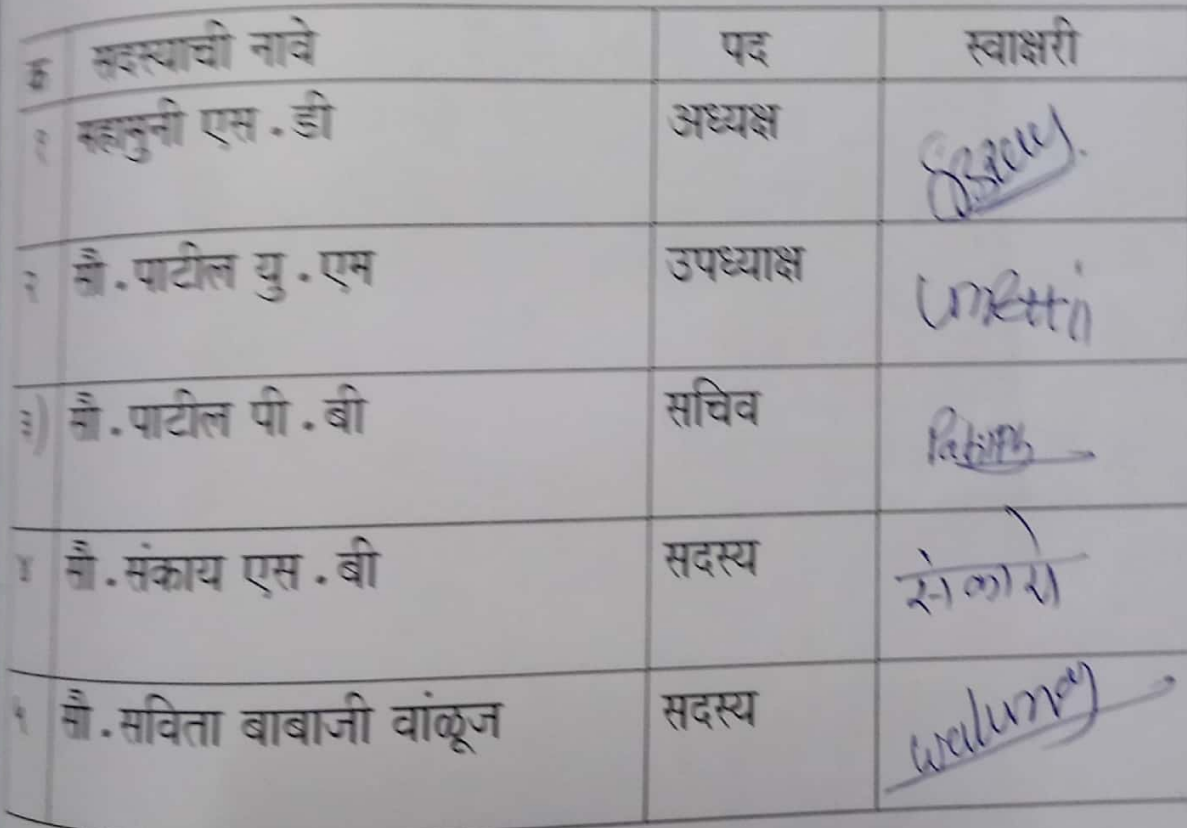 क्र सदस्याची नावे पद स्वाक्षरी
१ महामुनी एस . डी अध्यक्ष
२ सौ . पाटील यु . एम उपध्याक्ष
३) सौ . पाटील पी . बी सचिव
४ सौ . संकाय एस . बी सदस्य
५ सौ . सविता बाबाजी वांळूज सदस्य